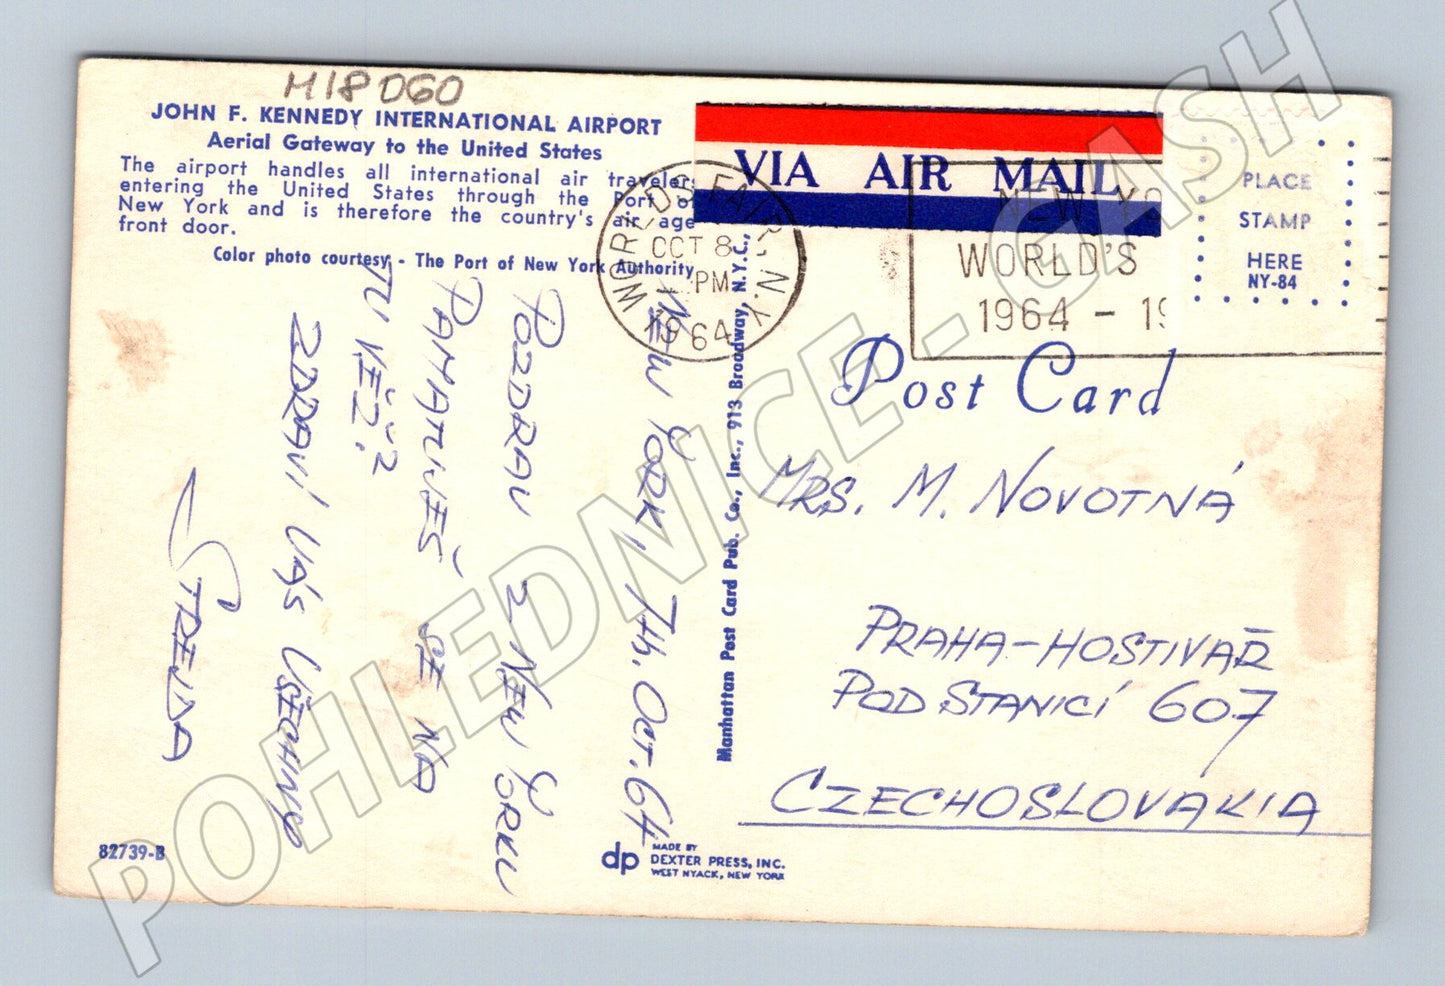 M18060
JOHN F. KENNEDY INTERNATIONAL AIRPORT
Aerial Gateway to the United States
The airport handles all international air travelers
entering the United States through the Port of
New York and is therefore the country's air age
front door.
Color photo courtesy - The Port of New York Authority
NEW YORK, 7TH. OCT. 64
POZDRAV Z NEW YORKU
PAMATUJEŠ SE NA
TU VĚŽ?
ZDRAVÍ VÁS VŠECHNY
STREJDA
82739-B
dp
MADE BY
DEXTER PRESS, INC.
WEST NYACK, NEW YORK
Manhattan Post Card Pub. Co., Inc., 913 Broadway, N.Y.C.,
WORLD'S FAIR, N.Y.
OCT 8
PM
1964
VIA AIR MAIL
NEW YO
WORLD'S
1964 - 19
PLACE
STAMP
HERE
NY-84
Post Card
MRS. M. NOVOTNÁ
PRAHA-HOSTIVAŘ
POD STANICÍ 607
CZECHOSLOVAKIA
POHLEDNICE - GASH